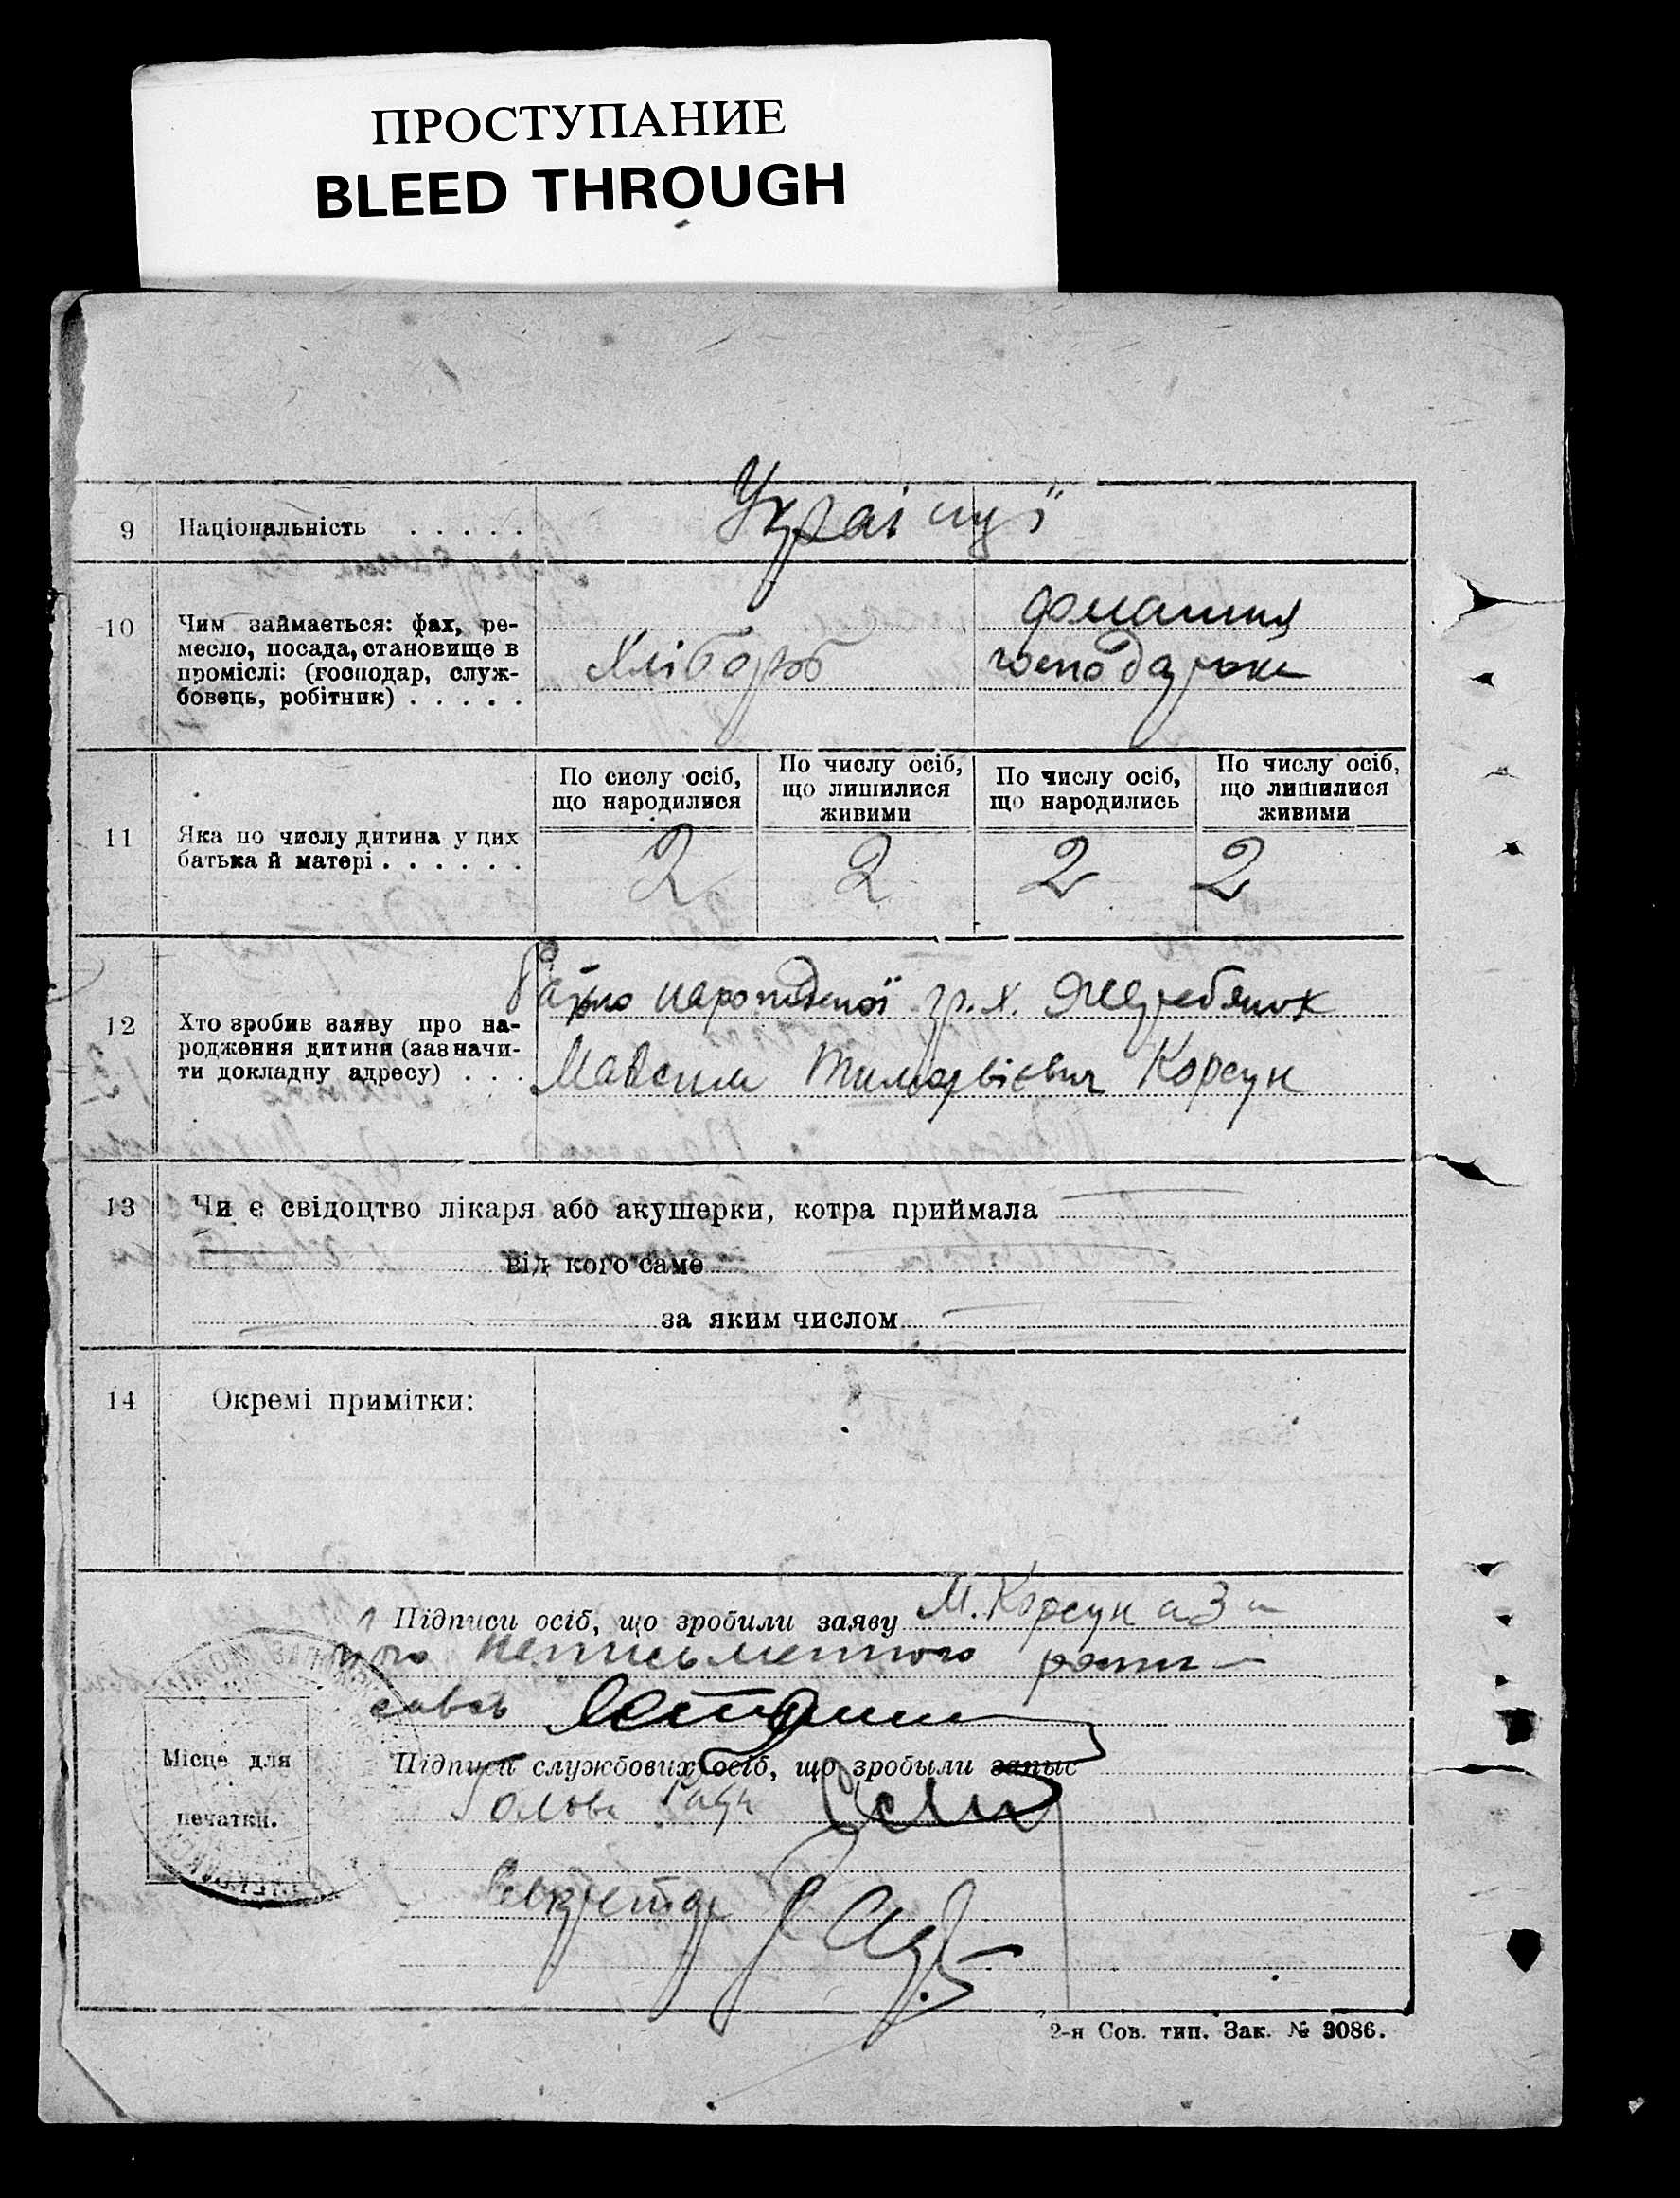 ПРОСТУПАНИЕ
BLEED THROUGH
9 Національність . . . . . Українці
10 Чим займається: фах, ре-
месло, посада, становище в
проміслі: (господар, служ-
бовець, робітник) . . . . .
Хлібороб
домашня
господарка
11 Яка по числу дитина у цих
батька й матері . . . . . .
По сислу осіб,
що народилися
По числу осіб,
що лишилися
живими
По числу осіб,
що народились
По числу осіб,
що лишилися
живими
2 2 2 2
12 Хто зробив заяву про на-
родження дитини (зазначи-
ти докладну адресу) . . .
народженої гр. х. Жеребянок
Максим Тимофієвич Корсун
13 Чи є свідоцтво лікаря або акушерки, котра приймала
від кого саме
за яким числом
14 Окремі примітки:
Підписи осіб, що зробили заяву М. Корсун а За
його неписьменного распи-
савсь
Підписи службових осіб, що зробыли запыс
Голова Ради
Секретар
Місце для
печатки.
2-я Сов. тип. Зак. № 3086.